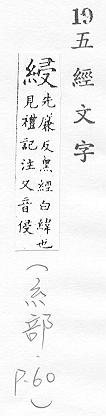 19 五經文字
綅
先廉反黑經白緯也
見禮記注又音侵
(糸部.P.60)